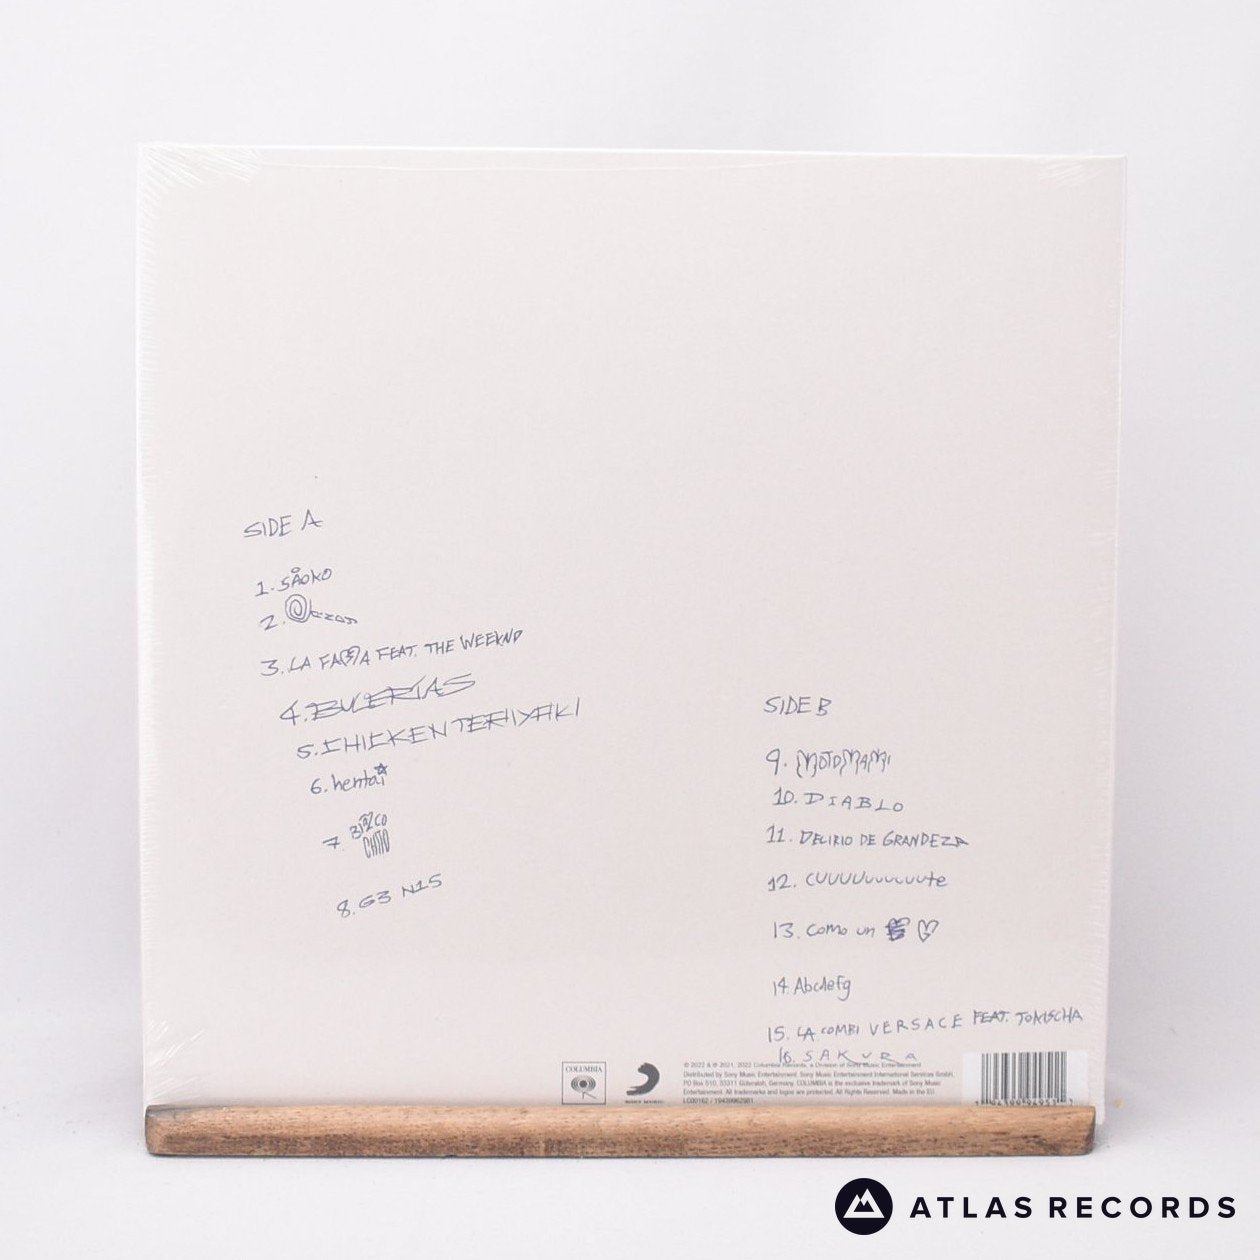 SIDE A
1. SAOKO
2. Candy
3. LA FAMA FEAT. THE WEEKND
4. BULERÍAS
5. CHICKEN TERIYAKI
6. hentai
7. BIZCO
CHITO
8. G3 N15
SIDE B
9. MOTOMAMI
10. DIABLO
11. DELIRIO DE GRANDEZA
12. CUUUUuuuuuute
13. Como un
14. Abcdefg
15. LA COMBI VERSACE FEAT. TOKISCHA
16. SAKURA
COLUMBIA
SONY MUSIC
℗ 2022 & © 2021, 2022 Columbia Records, a Division of Sony Music Entertainment
Distributed by Sony Music Entertainment. Sony Music Entertainment International Services GmbH,
PO Box 510, 33311 Gütersloh, Germany. COLUMBIA is the exclusive trademark of Sony Music
Entertainment. All trademarks and logos are protected. All Rights Reserved. Made in the EU
LC00162 / 19439962981
ATLAS RECORDS